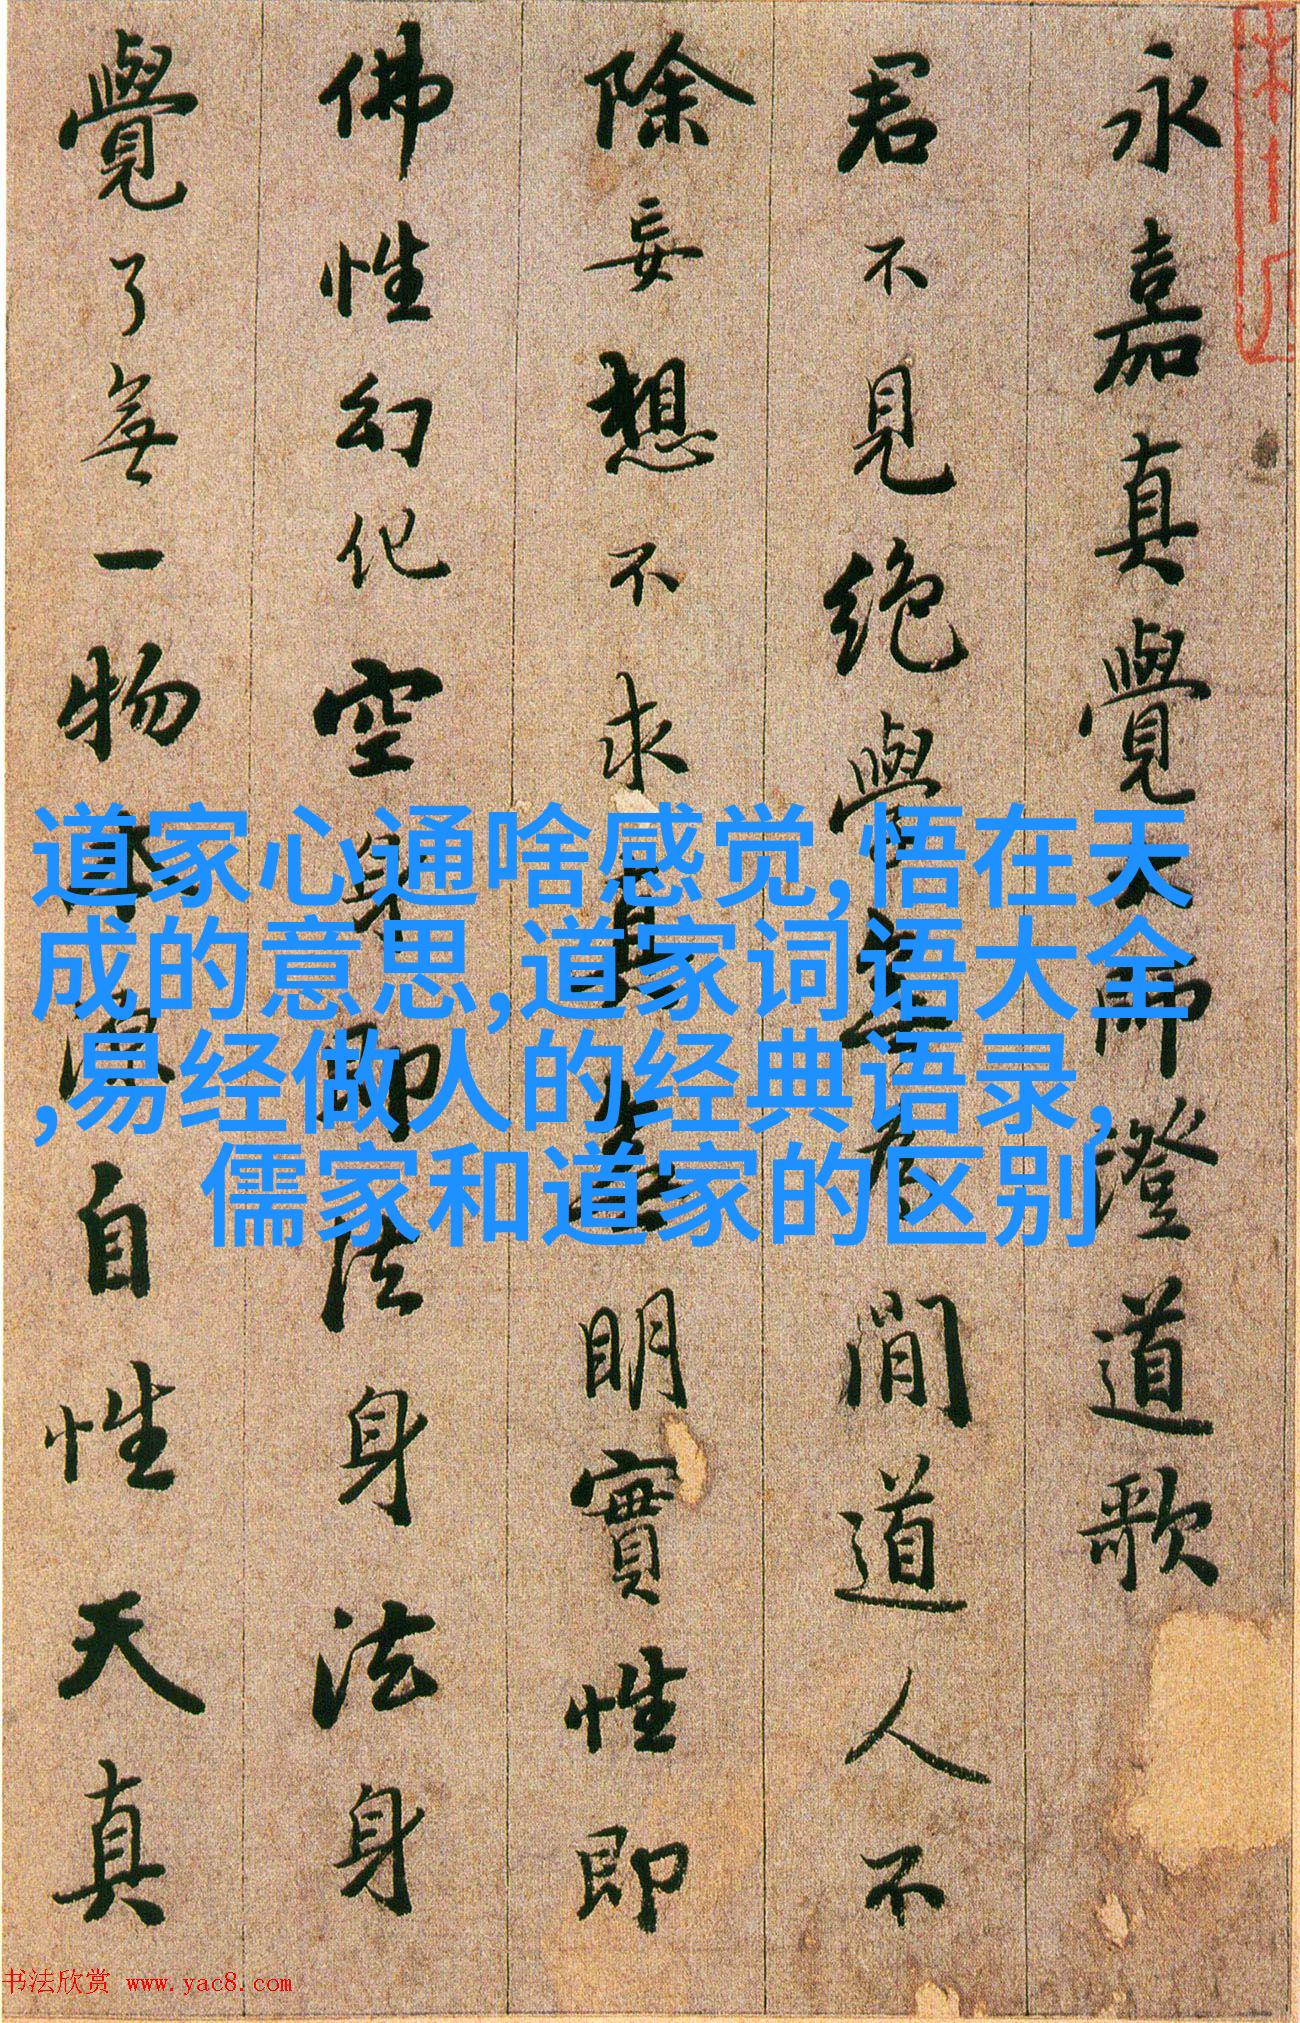 永嘉真覺大師證道歌
君不見絕學無為閒道人不
除妄想不求真無明實性即
佛性幻化空身即法身法身
覺了無一物本源自性天真
道家心通啥感觉,悟在天
成的意思,道家词语大全
,易经做人的经典语录,
儒家和道家的区别
书法欣赏 www.yac8.com